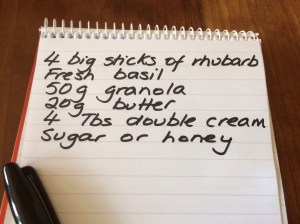 4 big sticks of rhubarb
Fresh basil
50g granola
20g butter
4 Tbs double cream
Sugar or honey